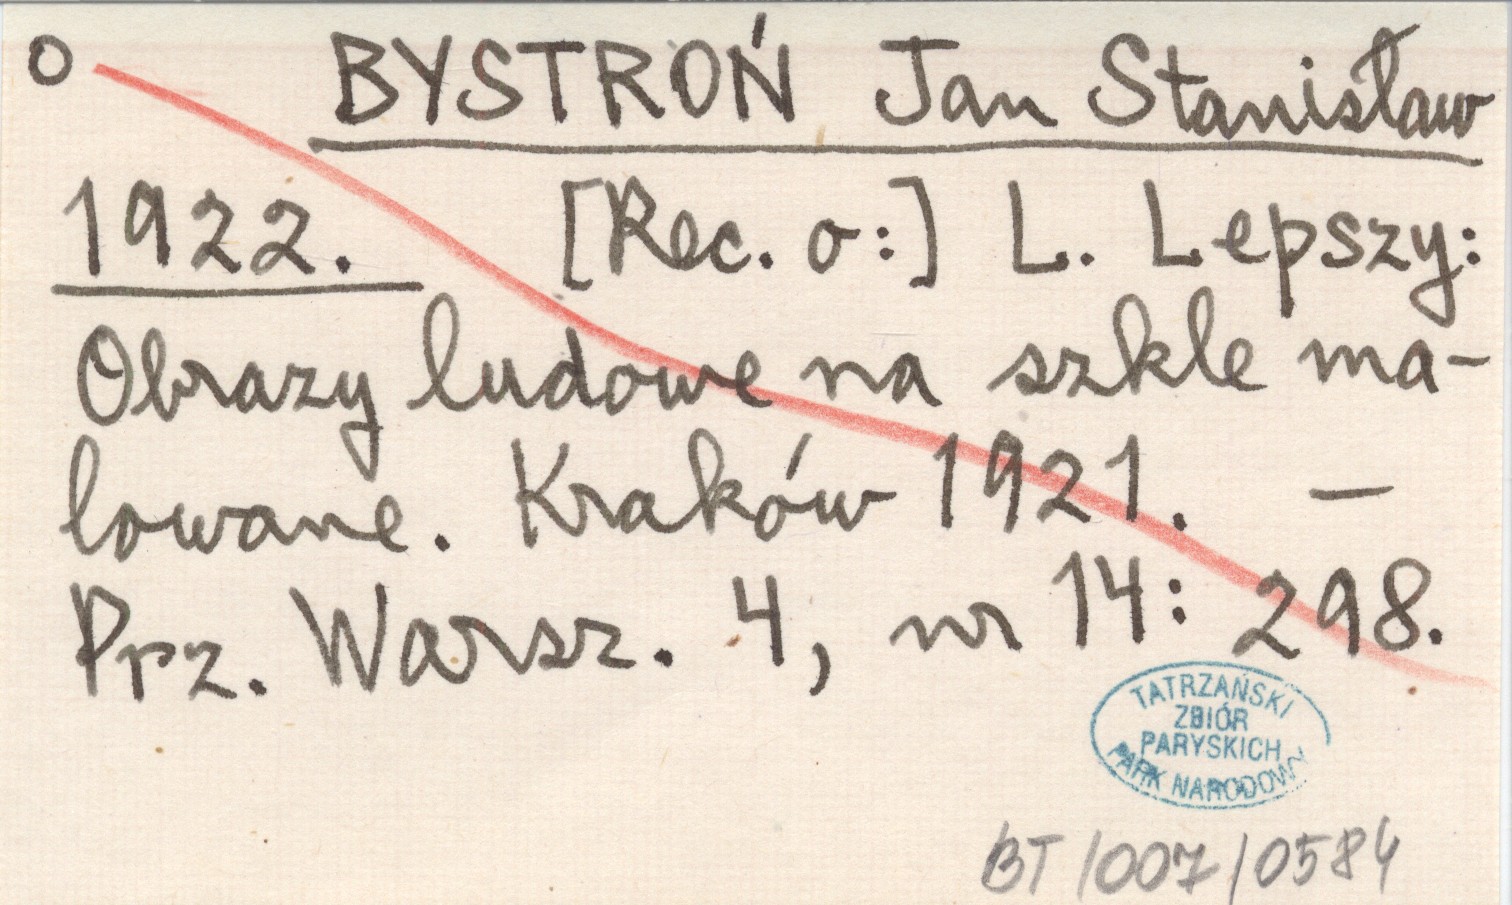 o BYSTROŃ Jan Stanisław
1922. [Rec. o:] L. Lepszy:
Obrazy ludowe na szkle ma-
lowane. Kraków 1921. —
Prz. Warsz. 4, nr 14: 298.
TATRZAŃSKI
ZBIÓR
PARYSKICH
PARK NARODOWY
BT/007/0584